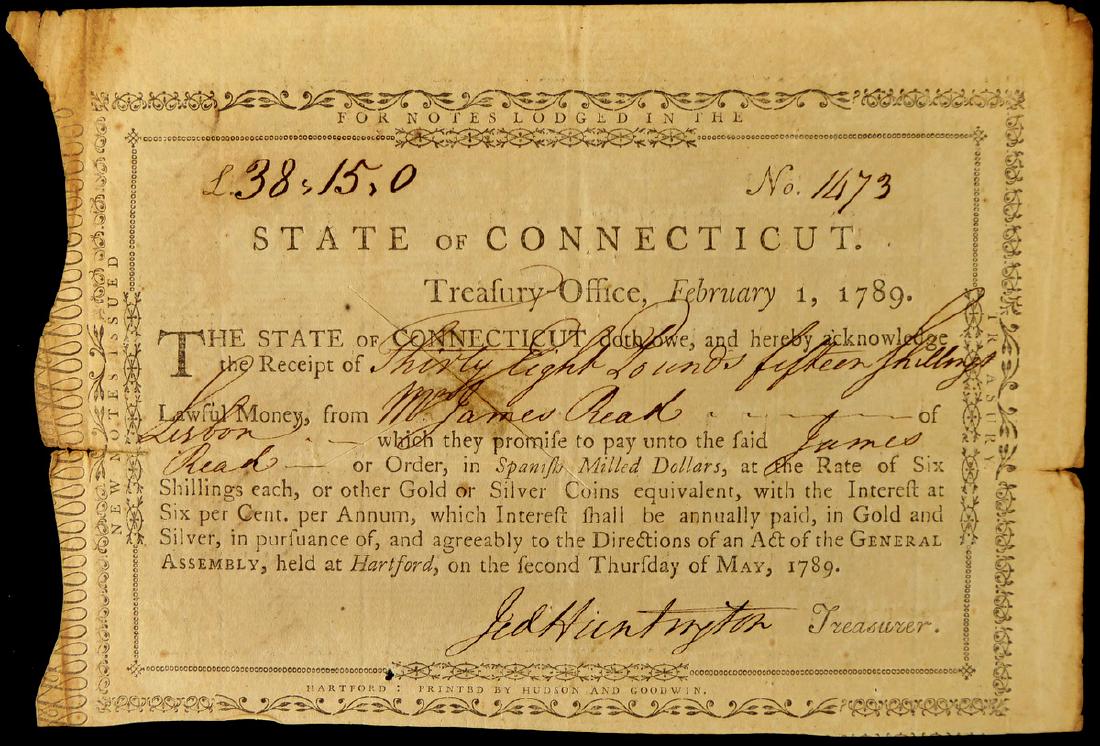 FOR NOTES LODGED IN THE
£. 38 , 15 , 0 No. 1473
STATE OF CONNECTICUT.
Treaſury-Office, February 1, 1789.
THE STATE OF CONNECTICUT doth owe, and hereby acknowledge
the Receipt of Thirty Eight Pounds fifteen Shillings
Lawful Money, from Mr. James Read of
Lisbon which they promiſe to pay unto the ſaid James
Read or Order, in Spaniſh Milled Dollars, at the Rate of Six
Shillings each, or other Gold or Silver Coins equivalent, with the Intereſt at
Six per Cent. per Annum, which Intereſt ſhall be annually paid, in Gold and
Silver, in purſuance of, and agreeably to the Directions of an Act of the GENERAL
ASSEMBLY, held at Hartford, on the ſecond Thurſday of MAY, 1789.
Jed Huntington Treasurer.
HARTFORD: PRINTED BY HUDSON AND GOODWIN.
NEW NOTES ISSUED
TREASURY.